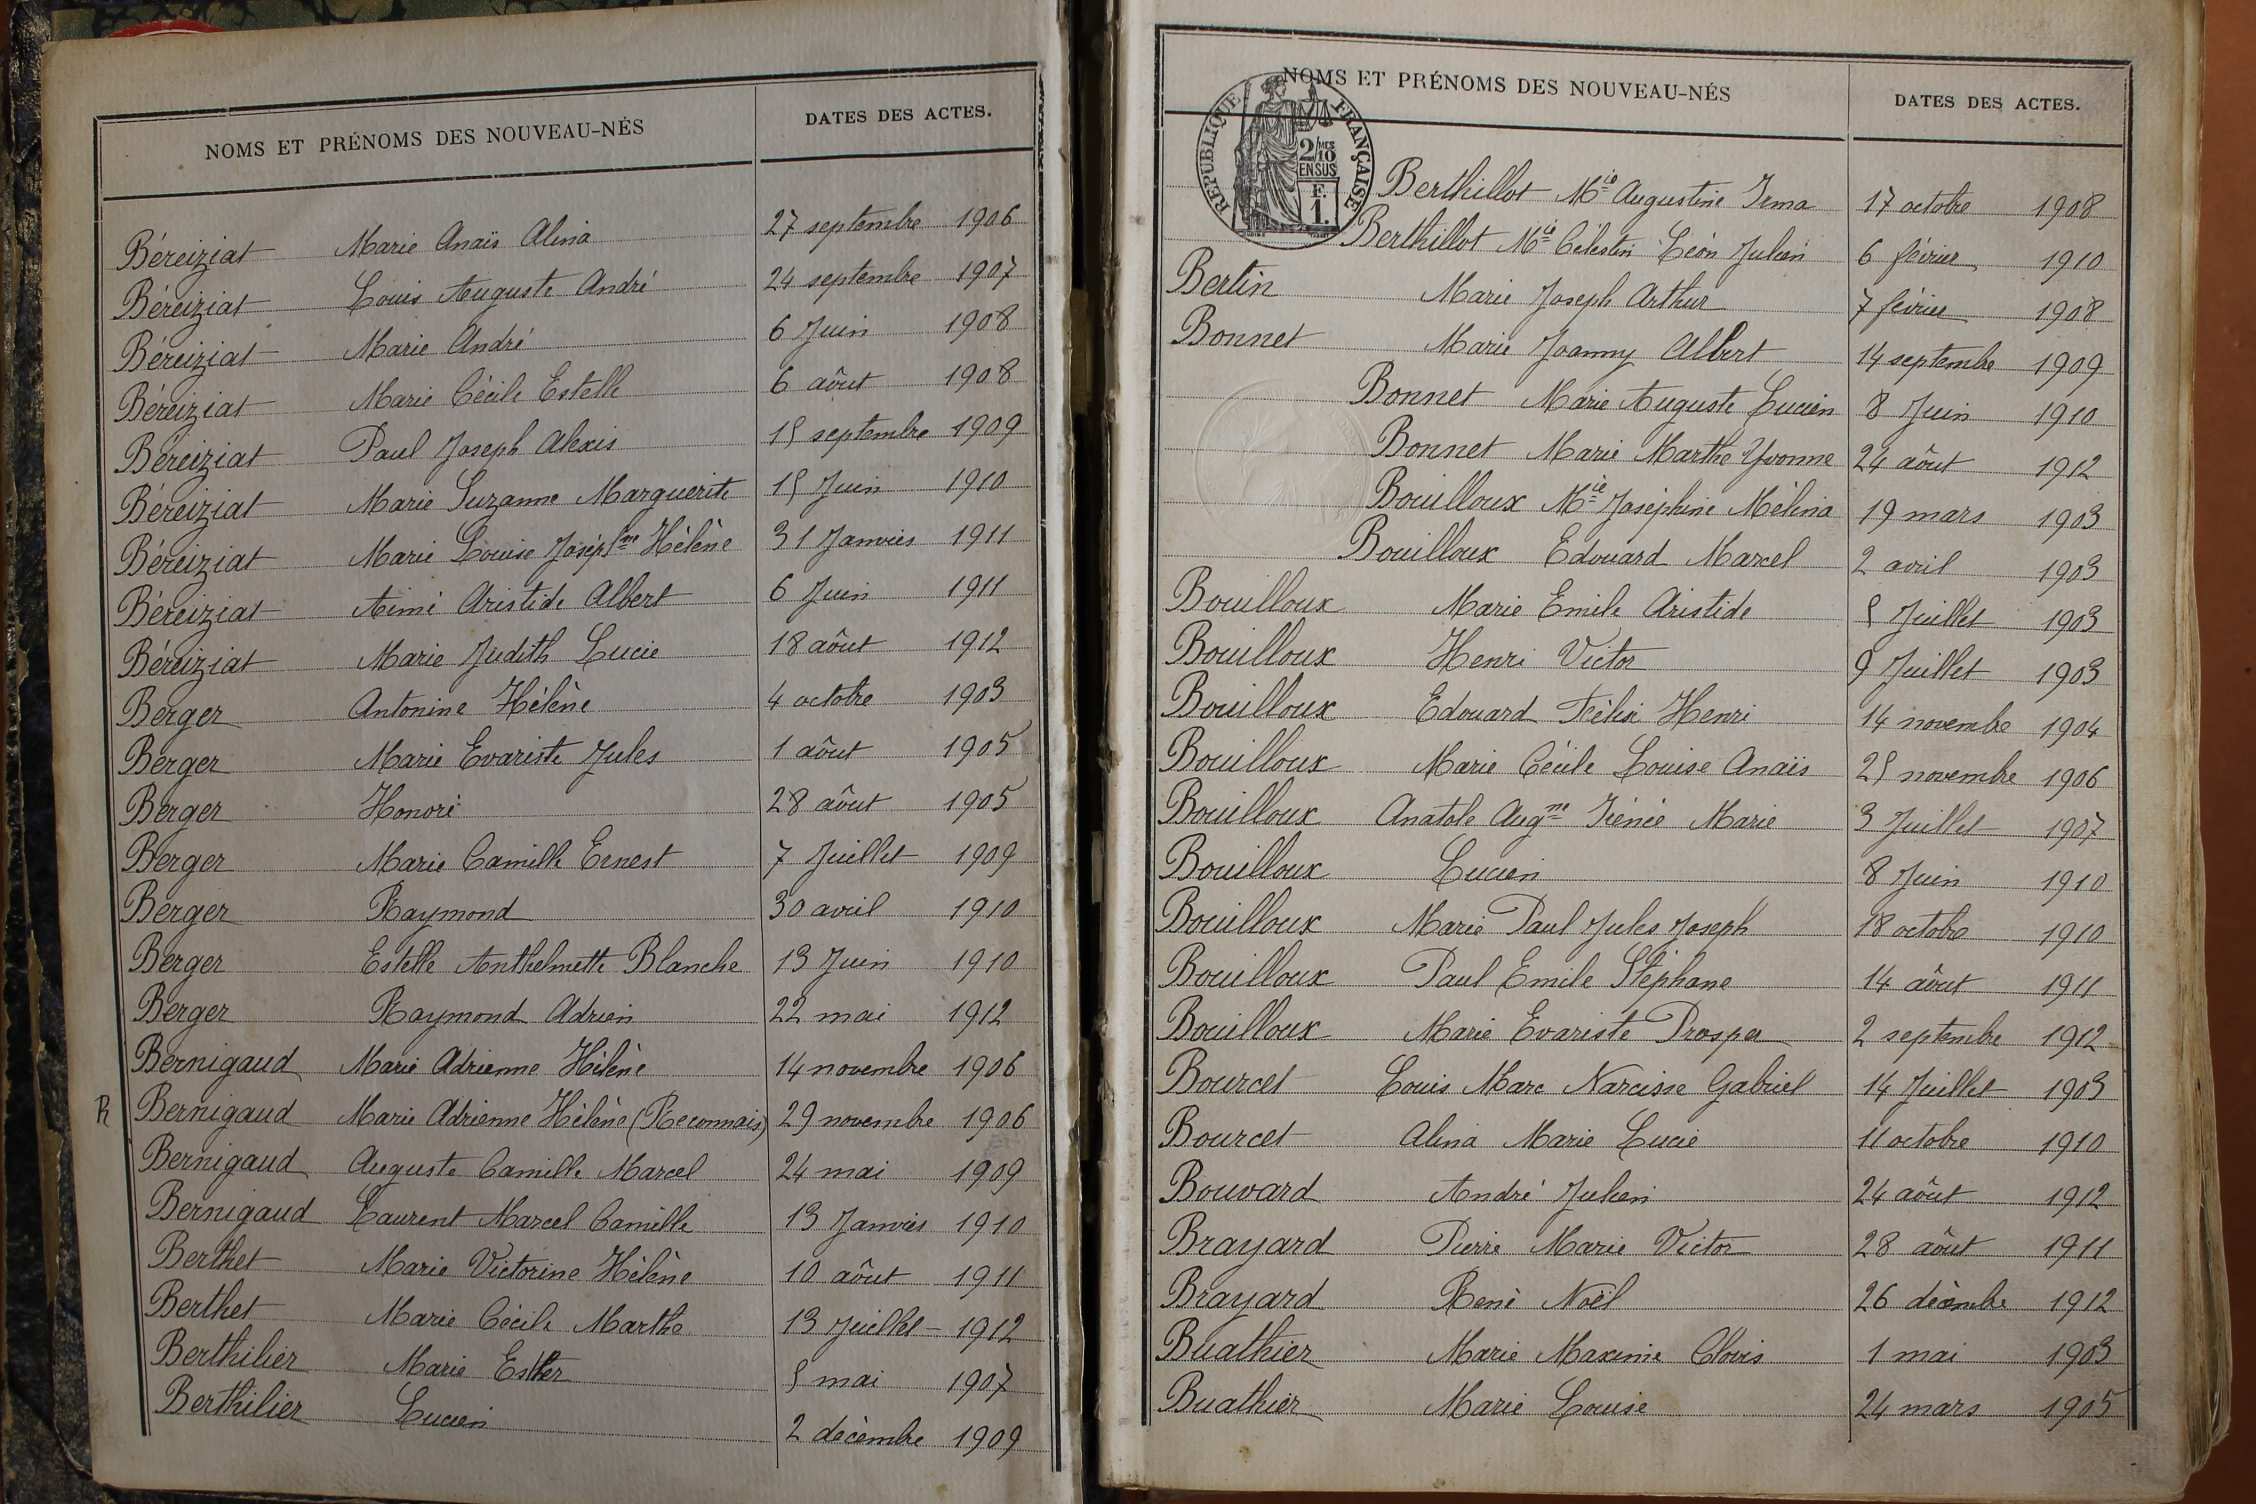 NOMS ET PRÉNOMS DES NOUVEAU-NÉS DATES DES ACTES.
Béreiziat Marie Anaïs Alina 27 septembre 1906
Béreiziat Louis Auguste André 24 septembre 1907
Béreiziat Marie André 6 Juin 1908
Béreiziat Marie Cécile Estelle 6 aôut 1908
Béreiziat Paul Joseph Alexis 15 septembre 1909
Béreiziat Marie Suzanne Marguerite 15 Juin 1910
Béreiziat Marie Louise Joséphne Hélène 31 Janvier 1911
Béreiziat Aimé Aristide Albert 6 Juin 1911
Béreiziat Marie Judith Lucie 18 aôut 1912
Berger Antonine Hélène 4 octobre 1903
Berger Marie Evariste Jules 1 aôut 1905
Berger Honoré 28 aôut 1905
Berger Marie Camille Ernest 7 Juillet 1909
Berger Raymond 30 avril 1910
Berger Estelle Anthelmette Blanche 13 Juin 1910
Berger Raymond Adrien 22 mai 1912
Bernigaud Marie Adrienne Hélène 14 novembre 1906
R Bernigaud Marie Adrienne Hélène (Reconnais) 29 novembre 1906
Bernigaud Auguste Camille Marcel 24 mai 1909
Bernigaud Laurent Marcel Camille 13 Janvier 1910
Berthet Marie Victorine Hélène 10 aôut 1911
Berthet Marie Cécile Marthe 13 Juillet 1912
Berthilier Marie Esther 5 mai 1907
Berthilier Lucien 2 décembre 1909
NOMS ET PRÉNOMS DES NOUVEAU-NÉS DATES DES ACTES.
RÉPUBLIQUE FRANÇAISE
2/10 MES
EN SUS
F.
1.
Berthillot Mie Augustine Irma 17 octobre 1908
Berthillot Mie Célestin Léon Julien 6 février 1910
Bertin Marie Joseph Arthur 7 février 1908
Bonnet Marie Joanny Albert 14 septembre 1909
Bonnet Marie Auguste Lucien 8 Juin 1910
Bonnet Marie Marthe Yvonne 24 aôut 1912
Bouilloux Mie Joséphine Mélina 19 mars 1903
Bouilloux Edouard Marcel 2 avril 1903
Bouilloux Marie Emile Aristide 5 Juillet 1903
Bouilloux Henri Victor 9 Juillet 1903
Bouilloux Edouard Félix Henri 14 novembre 1904
Bouilloux Marie Cécile Louise Anaïs 25 novembre 1906
Bouilloux Anatole Augne Irénée Marie 3 Juillet 1907
Bouilloux Lucien 8 Juin 1910
Bouilloux Marie Paul Jules Joseph 18 octobre 1910
Bouilloux Paul Emile Stéphane 14 aôut 1911
Bouilloux Marie Evariste Prosper 2 septembre 1912
Bourcet Louis Marc Narcisse Gabriel 14 Juillet 1903
Bourcet Alina Marie Lucie 11 octobre 1910
Bouvard André Julien 24 aôut 1912
Brayard Pierre Marie Victor 28 aôut 1911
Brayard René Noël 26 décembre 1912
Buathier Marie Maxime Clovis 1 mai 1903
Buathier Marie Louise 24 mars 1905